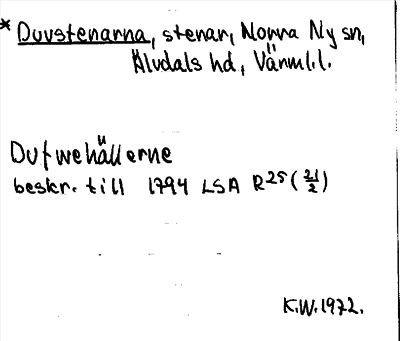 * Duvstenarna, stenar, Norra Ny sn,
Älvdals hd, Värml.l.
Dufwehällerne
beskr. till 1794 LSA R25 (21/2)
K.W. 1972.